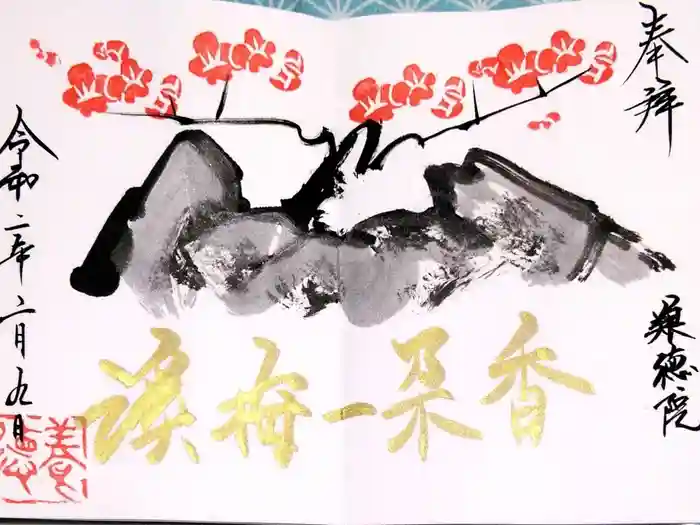 奉拝
渓梅一朶香
養徳院
令和二年二月九日
養徳